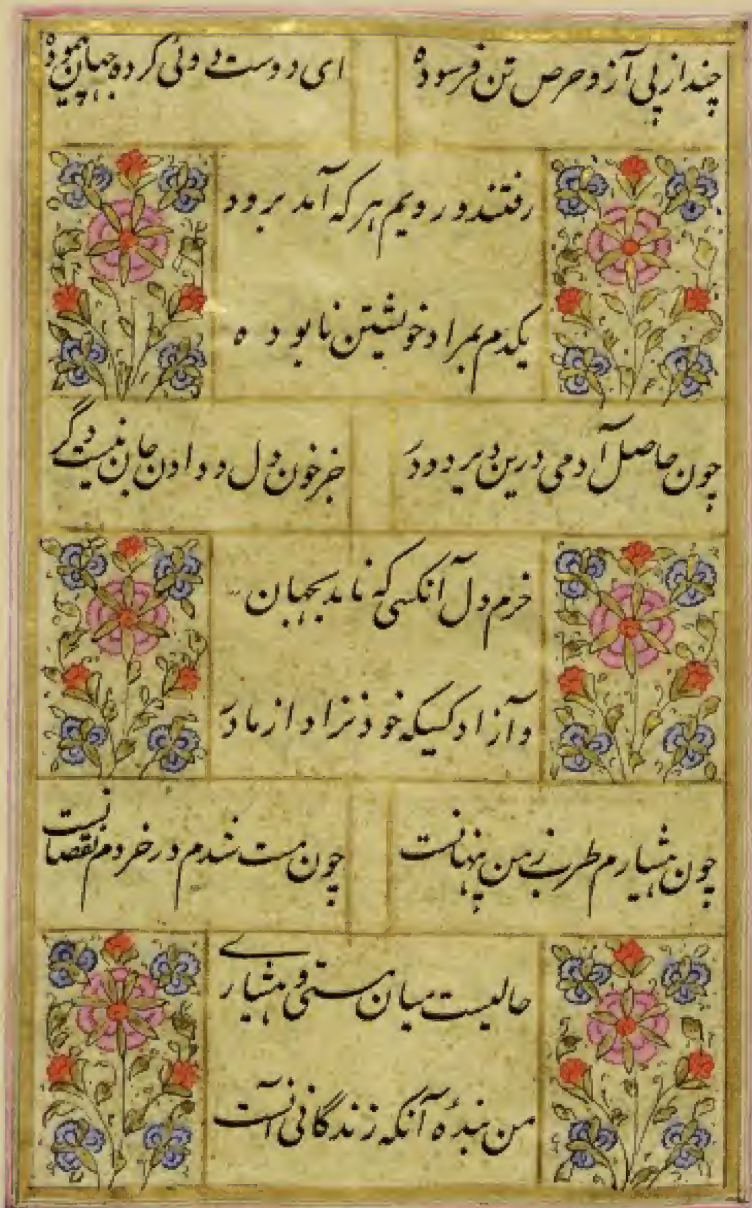 چند از پی آز و حرص تن فرسوده
ای دوست روی کرده جهان پیموده
رفتند و رویم هر که آمد برود
یکدم بمراد خویشتن نابوده
چون حاصل آدمی درین دیر دو در
جز خون دل و دادن جان نیست دگر
خرم دل آنکسی که نامد بجهان
و آزاد کسیکه خود نزاد از مادر
چون هشیارم طرب ز من پنهانست
چون مست شدم در خردم نقصانست
حالیست میان مستی و هشیاری
من بندهٔ آنکه زندگانی آنست